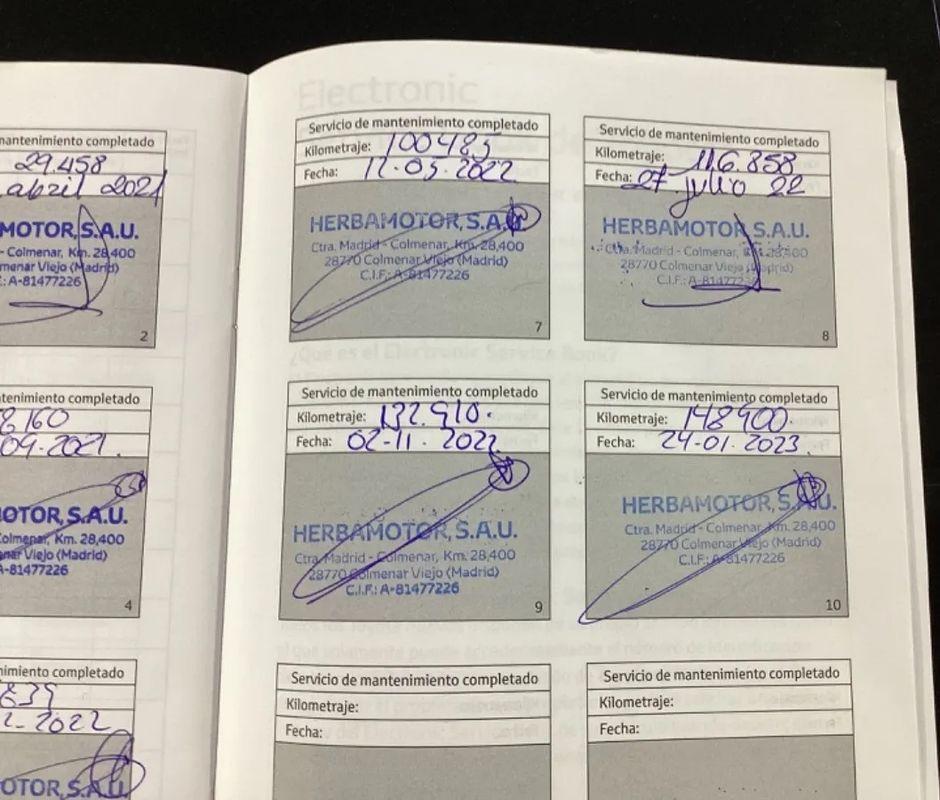 mantenimiento completado
29.458
abril 2021
MOTOR, S.A.U.
- Colmenar, Km. 28,400
menar Viejo (Madrid)
.: A-81477226
2
tenimiento completado
8160
09-2021.
OTOR, S.A.U.
Colmenar, Km. 28,400
enar Viejo (Madrid)
A-81477226
4
nimiento completado
839
2-2022
OTOR, S.A.U.
Electronic
Servicio de mantenimiento completado
Kilometraje: 100485
Fecha: 12-05-2022
HERBAMOTOR, S.A.U.
Ctra. Madrid - Colmenar, Km. 28,400
28770 Colmenar Viejo (Madrid)
C.I.F.: A-81477226
7
Servicio de mantenimiento completado
Kilometraje: 116.858
Fecha: 27 julio 22
HERBAMOTOR, S.A.U.
Ctra. Madrid - Colmenar, Km. 28,400
28770 Colmenar Viejo (Madrid)
C.I.F.: A-81477226
8
¿Qué es el Electronic Service Book?
Servicio de mantenimiento completado
Kilometraje: 132.910.
Fecha: 02-11. 2022
HERBAMOTOR, S.A.U.
Ctra. Madrid - Colmenar, Km. 28,400
28770 Colmenar Viejo (Madrid)
C.I.F.: A-81477226
9
Servicio de mantenimiento completado
Kilometraje: 148900.
Fecha: 24-01.2023.
HERBAMOTOR, S.A.U.
Ctra. Madrid - Colmenar, Km. 28,400
28770 Colmenar Viejo (Madrid)
C.I.F.: A-81477226
10
Servicio de mantenimiento completado
Kilometraje:
Fecha:
Servicio de mantenimiento completado
Kilometraje:
Fecha: